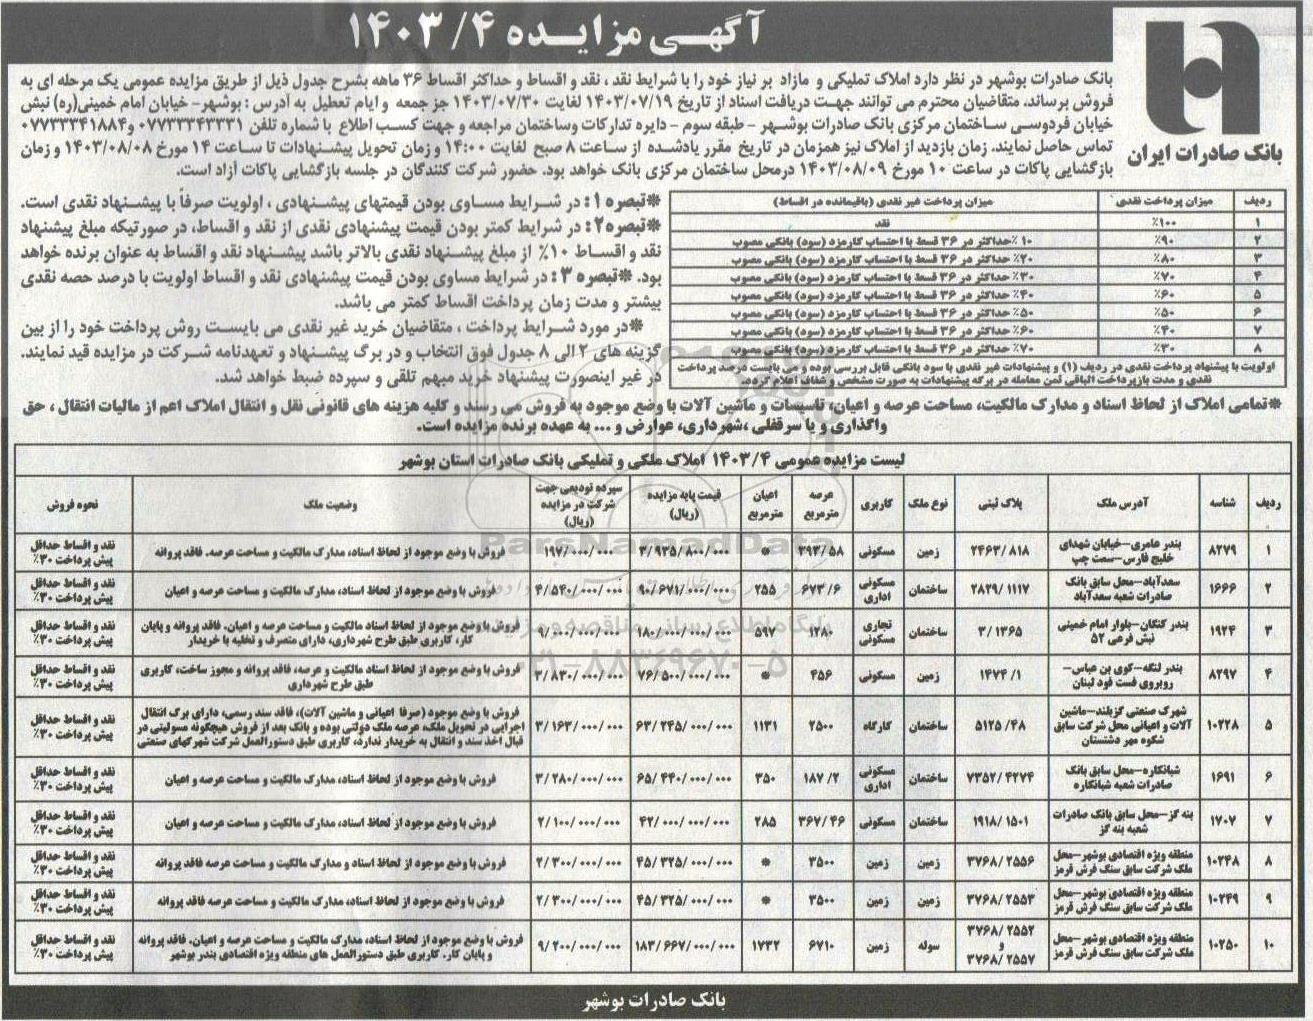 آگهی مزایده ۱۴۰۳/۴
بانک صادرات ایران
بانک صادرات بوشهر در نظر دارد املاک تملیکی و مازاد بر نیاز خود را با شرایط نقد ، نقد و اقساط و حداکثر اقساط ۳۶ ماهه بشرح جدول ذیل از طریق مزایده عمومی یک مرحله ای به
فروش برساند، متقاضیان محترم می توانند جهت دریافت اسناد از تاریخ ۱۴۰۳/۰۷/۱۹ لغایت ۱۴۰۳/۰۷/۳۰ جز جمعه و ایام تعطیل به آدرس : بوشهر- خیابان امام خمینی(ره) نبش
خیابان فردوسی ساختمان مرکزی بانک صادرات بوشهر - طبقه سوم - دایره تدارکات وساختمان مراجعه و جهت کسب اطلاع با شماره تلفن ۰۷۷۳۳۳۴۳۳۳۱ و۰۷۷۳۳۳۴۱۸۸۴
تماس حاصل نمایند. زمان بازدید از املاک نیز همزمان در تاریخ مقرر یادشده از ساعت ۸ صبح لغایت ۱۴:۰۰ و زمان تحویل پیشنهادات تا ساعت ۱۴ مورخ ۱۴۰۳/۰۸/۰۸ و زمان
بازگشایی پاکات در ساعت ۱۰ مورخ ۱۴۰۳/۰۸/۰۹ درمحل ساختمان مرکزی بانک خواهد بود. حضور شرکت کنندگان در جلسه بازگشایی پاکات آزاد است.
ردیف میزان پرداخت نقدی میزان پرداخت غیر نقدی (باقیمانده در اقساط)
۱ ۱۰۰٪ نقد
۲ ۹۰٪ ۱۰٪ حداکثر در ۳۶ قسط با احتساب کارمزد (سود) بانکی مصوب
۳ ۸۰٪ ۲۰٪ حداکثر در ۳۶ قسط با احتساب کارمزد (سود) بانکی مصوب
۴ ۷۰٪ ۳۰٪ حداکثر در ۳۶ قسط با احتساب کارمزد (سود) بانکی مصوب
۵ ۶۰٪ ۴۰٪ حداکثر در ۳۶ قسط با احتساب کارمزد (سود) بانکی مصوب
۶ ۵۰٪ ۵۰٪ حداکثر در ۳۶ قسط با احتساب کارمزد (سود) بانکی مصوب
۷ ۴۰٪ ۶۰٪ حداکثر در ۳۶ قسط با احتساب کارمزد (سود) بانکی مصوب
۸ ۳۰٪ ۷۰٪ حداکثر در ۳۶ قسط با احتساب کارمزد (سود) بانکی مصوب
اولویت با پیشنهاد پرداخت نقدی در ردیف (۱) و پیشنهادات غیر نقدی با سود بانکی قابل بررسی بوده و می بایست درصد پرداخت
نقدی و مدت بازپرداخت الباقی ثمن معامله در برگه پیشنهادات به صورت مشخص و شفاف اعلام گردد.
*تبصره ۱: در شرایط مساوی بودن قیمتهای پیشنهادی ، اولویت صرفاً با پیشنهاد نقدی است.
*تبصره۲: در شرایط کمتر بودن قیمت پیشنهادی نقدی از نقد و اقساط، در صورتیکه مبلغ پیشنهاد
نقد و اقساط ۱۰٪ از مبلغ پیشنهاد نقدی بالاتر باشد پیشنهاد نقد و اقساط به عنوان برنده خواهد
بود. *تبصره ۳: در شرایط مساوی بودن قیمت پیشنهادی نقد و اقساط اولویت با درصد حصه نقدی
بیشتر و مدت زمان پرداخت اقساط کمتر می باشد.
*در مورد شرایط پرداخت ، متقاضیان خرید غیر نقدی می بایست روش پرداخت خود را از بین
گزینه های ۲ الی ۸ جدول فوق انتخاب و در برگ پیشنهاد و تعهدنامه شرکت در مزایده قید نمایند.
در غیر اینصورت پیشنهاد خرید مبهم تلقی و سپرده ضبط خواهد شد.
*تمامی املاک از لحاظ اسناد و مدارک مالکیت، مساحت عرصه و اعیان، تاسیسات و ماشین آلات با وضع موجود به فروش می رسند و کلیه هزینه های قانونی نقل و انتقال املاک اعم از مالیات انتقال ، حق
واگذاری و یا سرقفلی ،شهرداری، عوارض و ... به عهده برنده مزایده است.
لیست مزایده عمومی ۱۴۰۳/۴ املاک ملکی و تملیکی بانک صادرات استان بوشهر
ردیف شناسه آدرس ملک پلاک ثبتی نوع ملک کاربری عرصه مترمربع اعیان مترمربع قیمت پایه مزایده (ریال) سپرده تودیعی جهت شرکت در مزایده (ریال) وضعیت ملک نحوه فروش
۱ ۸۲۷۹ بندر عامری-خیابان شهدای خلیج فارس-سمت چپ ۲۴۶۳/۸۱۸ زمین مسکونی ۳۹۳/۵۸ * ۳/۹۳۵/۸۰۰/۰۰۰ ۱۹۷/۰۰۰/۰۰۰ فروش با وضع موجود از لحاظ اسناد، مدارک مالکیت و مساحت عرصه. فاقد پروانه نقد و اقساط حداقل پیش پرداخت ۳۰٪
۲ ۱۶۶۶ سعدآباد-محل سابق بانک صادرات شعبه سعدآباد ۲۸۲۹/۱۱۱۷ ساختمان مسکونی اداری ۶۷۳/۶ ۲۵۵ ۹۰/۶۷۱/۰۰۰/۰۰۰ ۴/۵۴۰/۰۰۰/۰۰۰ فروش با وضع موجود از لحاظ اسناد، مدارک مالکیت و مساحت عرصه و اعیان نقد و اقساط حداقل پیش پرداخت ۳۰٪
۳ ۱۹۲۴ بندر کنگان-بلوار امام خمینی نبش فرعی ۵۲ ۳/۱۳۶۵ ساختمان تجاری مسکونی ۱۲۸۰ ۵۹۲ ۱۸۰/۰۰۰/۰۰۰/۰۰۰ ۹/۰۰۰/۰۰۰/۰۰۰ فروش با وضع موجود از لحاظ اسناد، مدارک مالکیت و مساحت عرصه و اعیان. فاقد پروانه و پایان کار، کاربری طبق طرح شهرداری، دارای متصرف و تخلیه با خریدار نقد و اقساط حداقل پیش پرداخت ۳۰٪
۴ ۸۲۹۷ بندر لنگه-کوی بن عباس- روبروی فست فود لبنان ۱۴۷۴/۱ زمین مسکونی ۴۵۶ * ۷۶/۵۰۰/۰۰۰/۰۰۰ ۳/۸۳۰/۰۰۰/۰۰۰ فروش با وضع موجود از لحاظ اسناد مدارک مالکیت و عرصه، فاقد پروانه و مجوز ساخت، کاربری طبق طرح شهرداری نقد و اقساط حداقل پیش پرداخت ۳۰٪
۵ ۱۰۲۲۸ شهرک صنعتی گزبلند-ماشین آلات و اعیانی محل شرکت سابق شکوه مهر دشتستان ۵۱۲۵/۴۸ ساختمان کارگاه ۲۵۰۰ ۱۱۳۱ ۶۳/۲۴۵/۰۰۰/۰۰۰ ۳/۱۶۳/۰۰۰/۰۰۰ فروش با وضع موجود (صرفا اعیانی و ماشین آلات)، فاقد سند رسمی، دارای برگ انتقال اجرایی در تحویل ملک، عرصه ملک دولتی بوده و بانک بعد از فروش هیچگونه مسولیتی در قبال اخذ سند و انتقال به خریدار ندارد، کاربری طبق دستورالعمل شرکت شهرکهای صنعتی نقد و اقساط حداقل پیش پرداخت ۳۰٪
۶ ۱۶۹۱ شبانکاره-محل سابق بانک صادرات شعبه شبانکاره ۷۳۵۲/۴۲۷۴ ساختمان مسکونی اداری ۱۸۷/۲ ۳۵۰ ۶۵/۴۴۰/۰۰۰/۰۰۰ ۳/۲۸۰/۰۰۰/۰۰۰ فروش با وضع موجود از لحاظ اسناد، مدارک مالکیت و مساحت عرصه و اعیان نقد و اقساط حداقل پیش پرداخت ۳۰٪
۷ ۱۷۰۷ بنه گز-محل سابق بانک صادرات شعبه بنه گز ۱۹۱۸/۱۵۰۱ ساختمان مسکونی ۳۶۷/۴۶ ۲۸۵ ۴۲/۰۰۰/۰۰۰/۰۰۰ ۲/۱۰۰/۰۰۰/۰۰۰ فروش با وضع موجود از لحاظ اسناد، مدارک مالکیت و مساحت عرصه و اعیان نقد و اقساط حداقل پیش پرداخت ۳۰٪
۸ ۱۰۲۴۸ منطقه ویژه اقتصادی بوشهر-محل ملک شرکت سابق سنگ فرش قرمز ۳۷۶۸/۲۵۵۶ زمین زمین ۳۵۰۰ * ۴۵/۳۲۵/۰۰۰/۰۰۰ ۲/۳۰۰/۰۰۰/۰۰۰ فروش با وضع موجود از لحاظ اسناد و مدارک مالکیت و مساحت عرصه فاقد پروانه نقد و اقساط حداقل پیش پرداخت ۳۰٪
۹ ۱۰۲۴۹ منطقه ویژه اقتصادی بوشهر-محل ملک شرکت سابق سنگ فرش قرمز ۳۷۶۸/۲۵۵۳ زمین زمین ۳۵۰۰ * ۴۵/۳۲۵/۰۰۰/۰۰۰ ۲/۳۰۰/۰۰۰/۰۰۰ فروش با وضع موجود از لحاظ اسناد، مدارک مالکیت و مساحت عرصه فاقد پروانه نقد و اقساط حداقل پیش پرداخت ۳۰٪
۱۰ ۱۰۲۵۰ منطقه ویژه اقتصادی بوشهر-محل ملک شرکت سابق سنگ فرش قرمز ۳۷۶۸/۲۵۵۲ و ۳۷۶۸/۲۵۵۷ سوله زمین ۶۷۱۰ ۱۷۳۲ ۱۸۳/۶۶۷/۰۰۰/۰۰۰ ۹/۲۰۰/۰۰۰/۰۰۰ فروش با وضع موجود از لحاظ اسناد، مدارک مالکیت و مساحت عرصه و اعیان. فاقد پروانه و پایان کار. کاربری طبق دستورالعمل های منطقه ویژه اقتصادی بندر بوشهر نقد و اقساط حداقل پیش پرداخت ۳۰٪
ParsNamadData
۰۲۱-۸۸۳۴۹۶۷۰-۵
بانک صادرات بوشهر